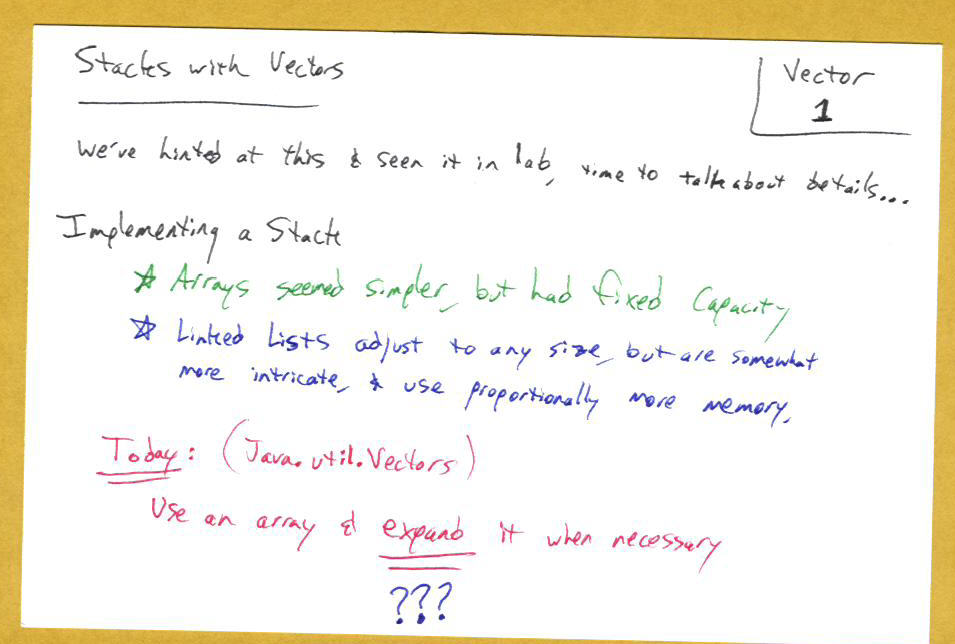 Stacks with Vectors
Vector
1
We've hinted at this & seen it in lab, time to talk about details...
Implementing a Stack
☆ Arrays seemed simpler, but had fixed Capacity
☆ Linked Lists adjust to any size, but are somewhat
more intricate, & use proportionally more memory.
Today: (Java.util.Vectors)
Use an array & expand it when necessary
???